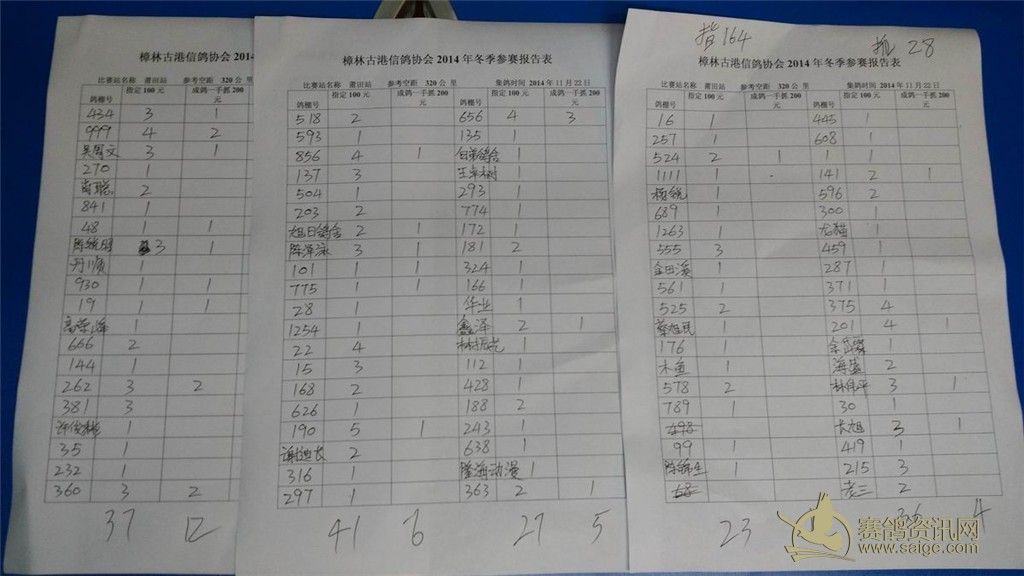 樟林古港信鸽协会 2014
比赛站名称 莆田站 参考空距 320 公 里
鸽棚号 指定 100 元 成鸽一手抓 200 元
434 3 1
999 4 2
吴周文 3 1
270 1
2
841 1
48 1 1
3 1
丹顺 1
930 1 1
19 1 1
1
666 2
144 1
262 3 2
381 3
1
35 1
232 1
360 3 2
37 12
樟林古港信鸽协会 2014 年冬季参赛报告表
比赛站名称 莆田站 参考空距 320 公 里 集鸽时间 2014 年 11 月 22 日
鸽棚号 指定 100 元 成鸽一手抓 200 元 鸽棚号 指定 100 元 成鸽一手抓 200 元
518 2 656 4 3
593 1 135 1
856 4 1 1
137 3 1
504 1 293 1
203 2 774 1
旭日鸽舍 2 1 172 1
陈泽泳 3 1 181 2
101 1 1 324 1
775 1 1 166 1
28 1 华业 1
1254 1 鑫泽 2 1
22 4 1
15 3 112 1
168 2 428 1
626 1 188 2
190 5 1 243 1
2 638 1
316 1 隆海动漫 1
297 1 363 2 1
41 6 27 5
指 164 抓 28
樟林古港信鸽协会 2014 年冬季参赛报告表
比赛站名称 莆田站 参考空距 320 公 里 集鸽时间 2014 年 11 月 22 日
鸽棚号 指定 100 元 成鸽一手抓 200 元 鸽棚号 指定 100 元 成鸽一手抓 200 元
16 1 445 1
257 1 608
524 2 1 1 1
1111 1 141 2 1
杨锐 1 596 2
689 1 300 1
1263 1 龙猫 1
555 3 459 1
金田溪 1 287 1
561 1 371 1
525 2 375 4
蔡旭民 1 201 4 1
176 1 1
木鱼 1 海鲨 2
578 2 林伟平 3 1
789 1 30 1
698 大旭 3 1
99 1 419 1
1 215 3
68 老三 2
23 36 4
赛鸽资讯网
www.saigc.com